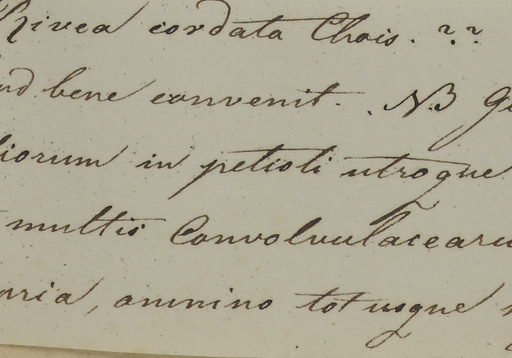 Rivea cordata Chois. ??
ud bene convenit. NB G
liorum in petioli utroque
multis Convolvulacearu
aria, omnino totusque